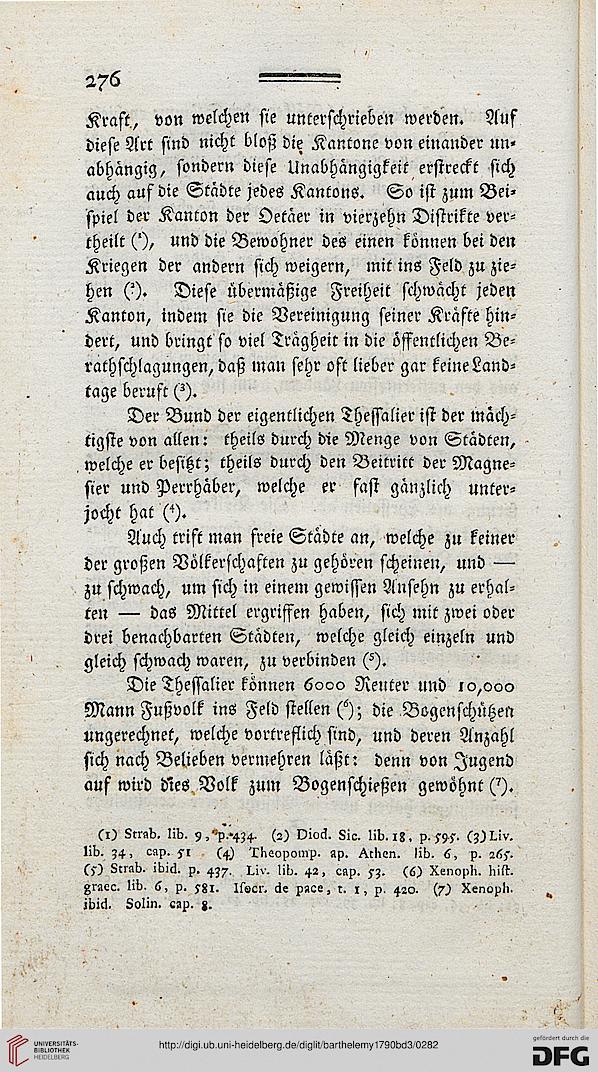 276
Kraft, von welchen sie unterschrieben werden. Auf
diese Art sind nicht bloß die Kantone von einander un-
abhängig, sondern diese Unabhängigkeit erstreckt sich
auch auf die Städte jedes Kantons. So ist zum Bei-
spiel der Kanton der Oetäer in vierzehn Distrikte ver-
theilt (¹), und die Bewohner des einen können bei den
Kriegen der andern sich weigern, mit ins Feld zu zie-
hen (²). Diese übermäßige Freiheit schwächt jeden
Kanton, indem sie die Vereinigung seiner Kräfte hin-
dert, und bringt so viel Trägheit in die öffentlichen Be-
rathschlagungen, daß man sehr oft lieber gar keine Land-
tage beruft (³).
Der Bund der eigentlichen Thessalier ist der mäch-
tigste von allen: theils durch die Menge von Städten,
welche er besitzt; theils durch den Beitritt der Magne-
sier und Perrhäber, welche er fast gänzlich unter-
jocht hat (⁴).
Auch trift man freie Städte an, welche zu keiner
der großen Völkerschaften zu gehören scheinen, und —
zu schwach, um sich in einem gewissen Ansehn zu erhal-
ten — das Mittel ergriffen haben, sich mit zwei oder
drei benachbarten Städten, welche gleich einzeln und
gleich schwach waren, zu verbinden (⁵).
Die Thessalier können 6000 Reuter und 10,000
Mann Fußvolk ins Feld stellen (⁶); die Bogenschützen
ungerechnet, welche vortreflich sind, und deren Anzahl
sich nach Belieben vermehren läßt: denn von Jugend
auf wird dies Volk zum Bogenschießen gewöhnt (⁷).
(1) Strab. lib. 9, p. 434. (2) Diod. Sic. lib. 18, p. 595. (3) Liv.
lib. 34, cap. 51 (4) Theopomp. ap. Athen. lib. 6, p. 265.
(5) Strab. ibid. p. 437. Liv. lib. 42, cap. 53. (6) Xenoph. hist.
graec. lib. 6, p. 581. Isocr. de pace, t. 1, p. 420. (7) Xenoph.
ibid. Solin. cap. 8.
UNIVERSITÄTS-
BIBLIOTHEK
HEIDELBERG
http://digi.ub.uni-heidelberg.de/diglit/barthelemy1790bd3/0282
gefördert durch die
DFG